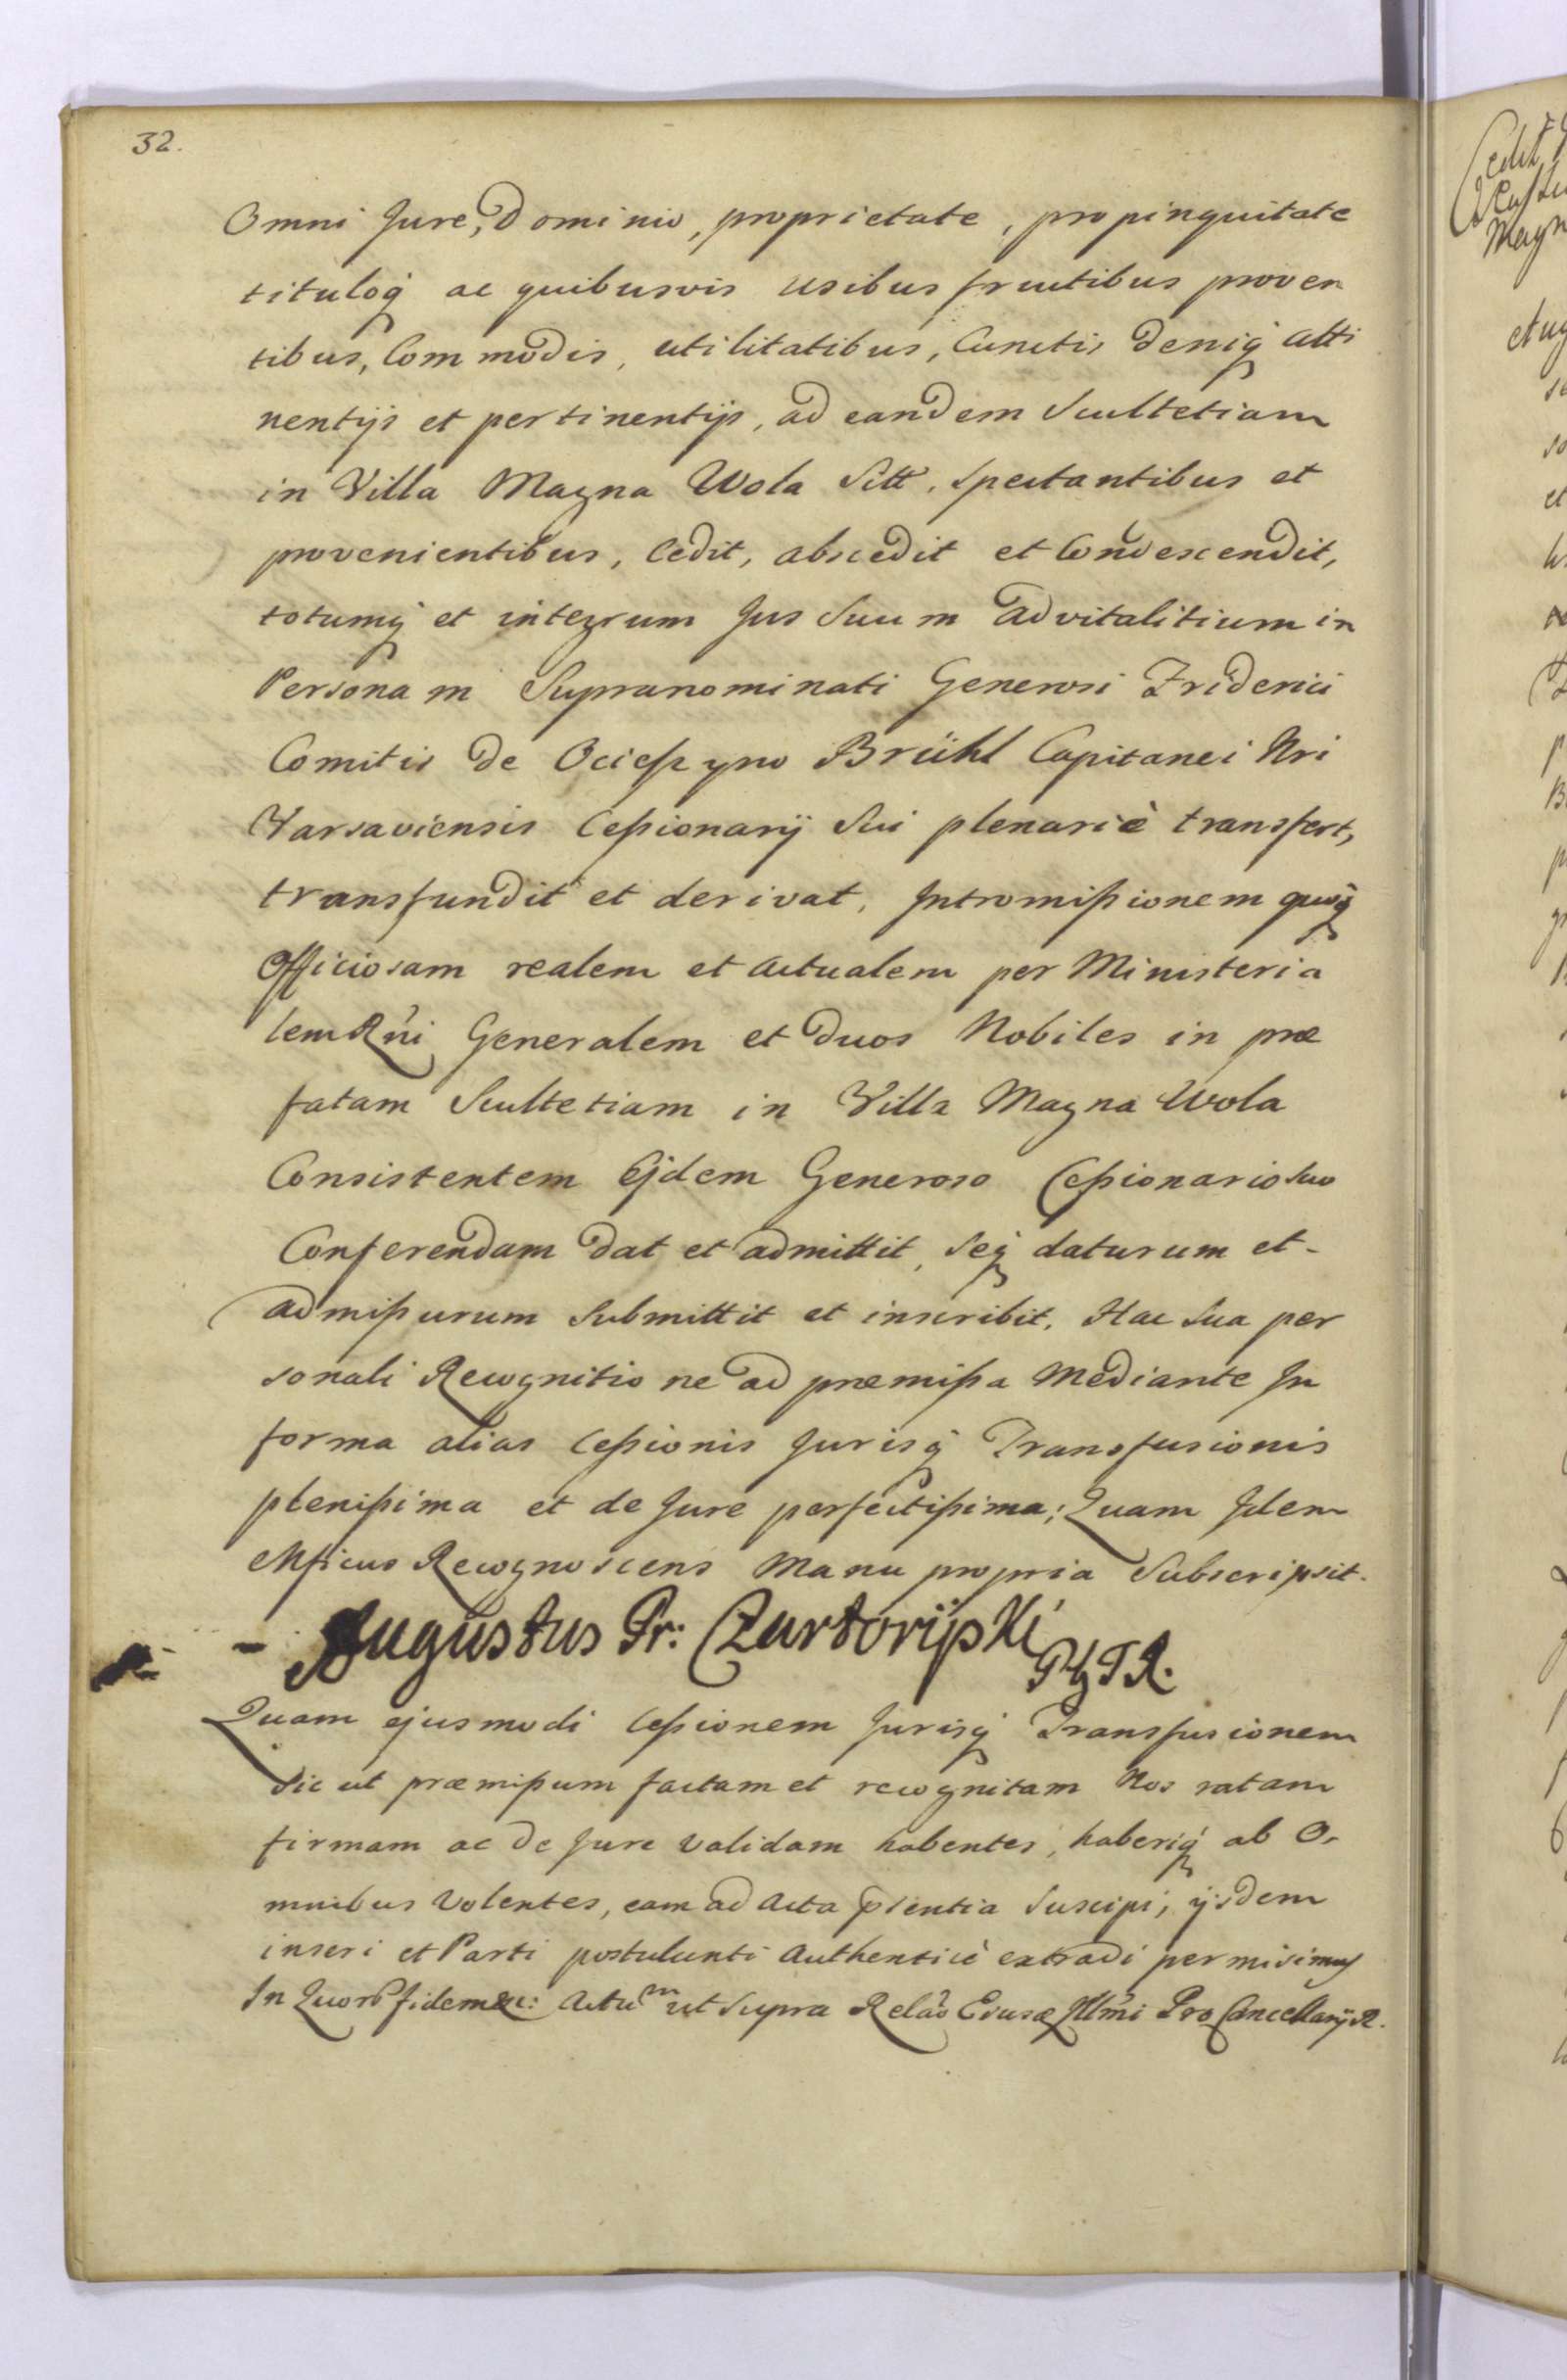 32.
Omni Jure, Dominio, proprietate, propinquitate
tituloq́ ac quibusvis usibus fructibus proven
tibus, Commodis, utilitatibus, Cunctis deniq́ atti
nentijs et pertinentijs, ad eandem Scultetiam
in Villa Magna Wola Sitt, Spectantibus et
provenientibus, Cedit, abscedit et Condescendit,
totumq́ et integrum Jus Suum advitalitium in
Personam Supranominati Generosi Friderici
Comitis de Ocieszyno Brühl Capitanei Nri
Varsaviensis Cessionarij Sui plenariè transfert,
transfundit et derivat, Intromissionem quoq́
Officiosam realem et actualem per Ministeria
lem Rńi Generalem et duos Nobiles in præ
fatam Scultetiam in Villa Magna Wola
Consistentem Ejdem Generoso Cessionario Suo
Conferendam dat et admittit, Seq́ daturum et-
admissurum Submittit et inscribit. Hac Sua per
sonali Recognitione ad præmissa Mediante In
forma alias Cessionis Jurisq́ Transfusionis
plenissima et de Jure perfectissima; Quam Idem
Mficus Recognoscens Manu propria Subscripsit.
- Augustus Pr: Czartoryski
Quam ejusmodi Cessionem Jurisq́ Transfusionem
Sic ut præmissum factam et recognitam Nos ratam
firmam ac de Jure validam habentes, haberiq́ ab O-
mnibus Volentes, eam ad Acta pֿsentia Suscipi, ijsdem
inseri et Parti postulanti Authenticè extradi permisimus
In Quorֿ fidem &c: Actum ut Supra Relaō Illmi Pro Cancellarij R.
Cedit
Magn